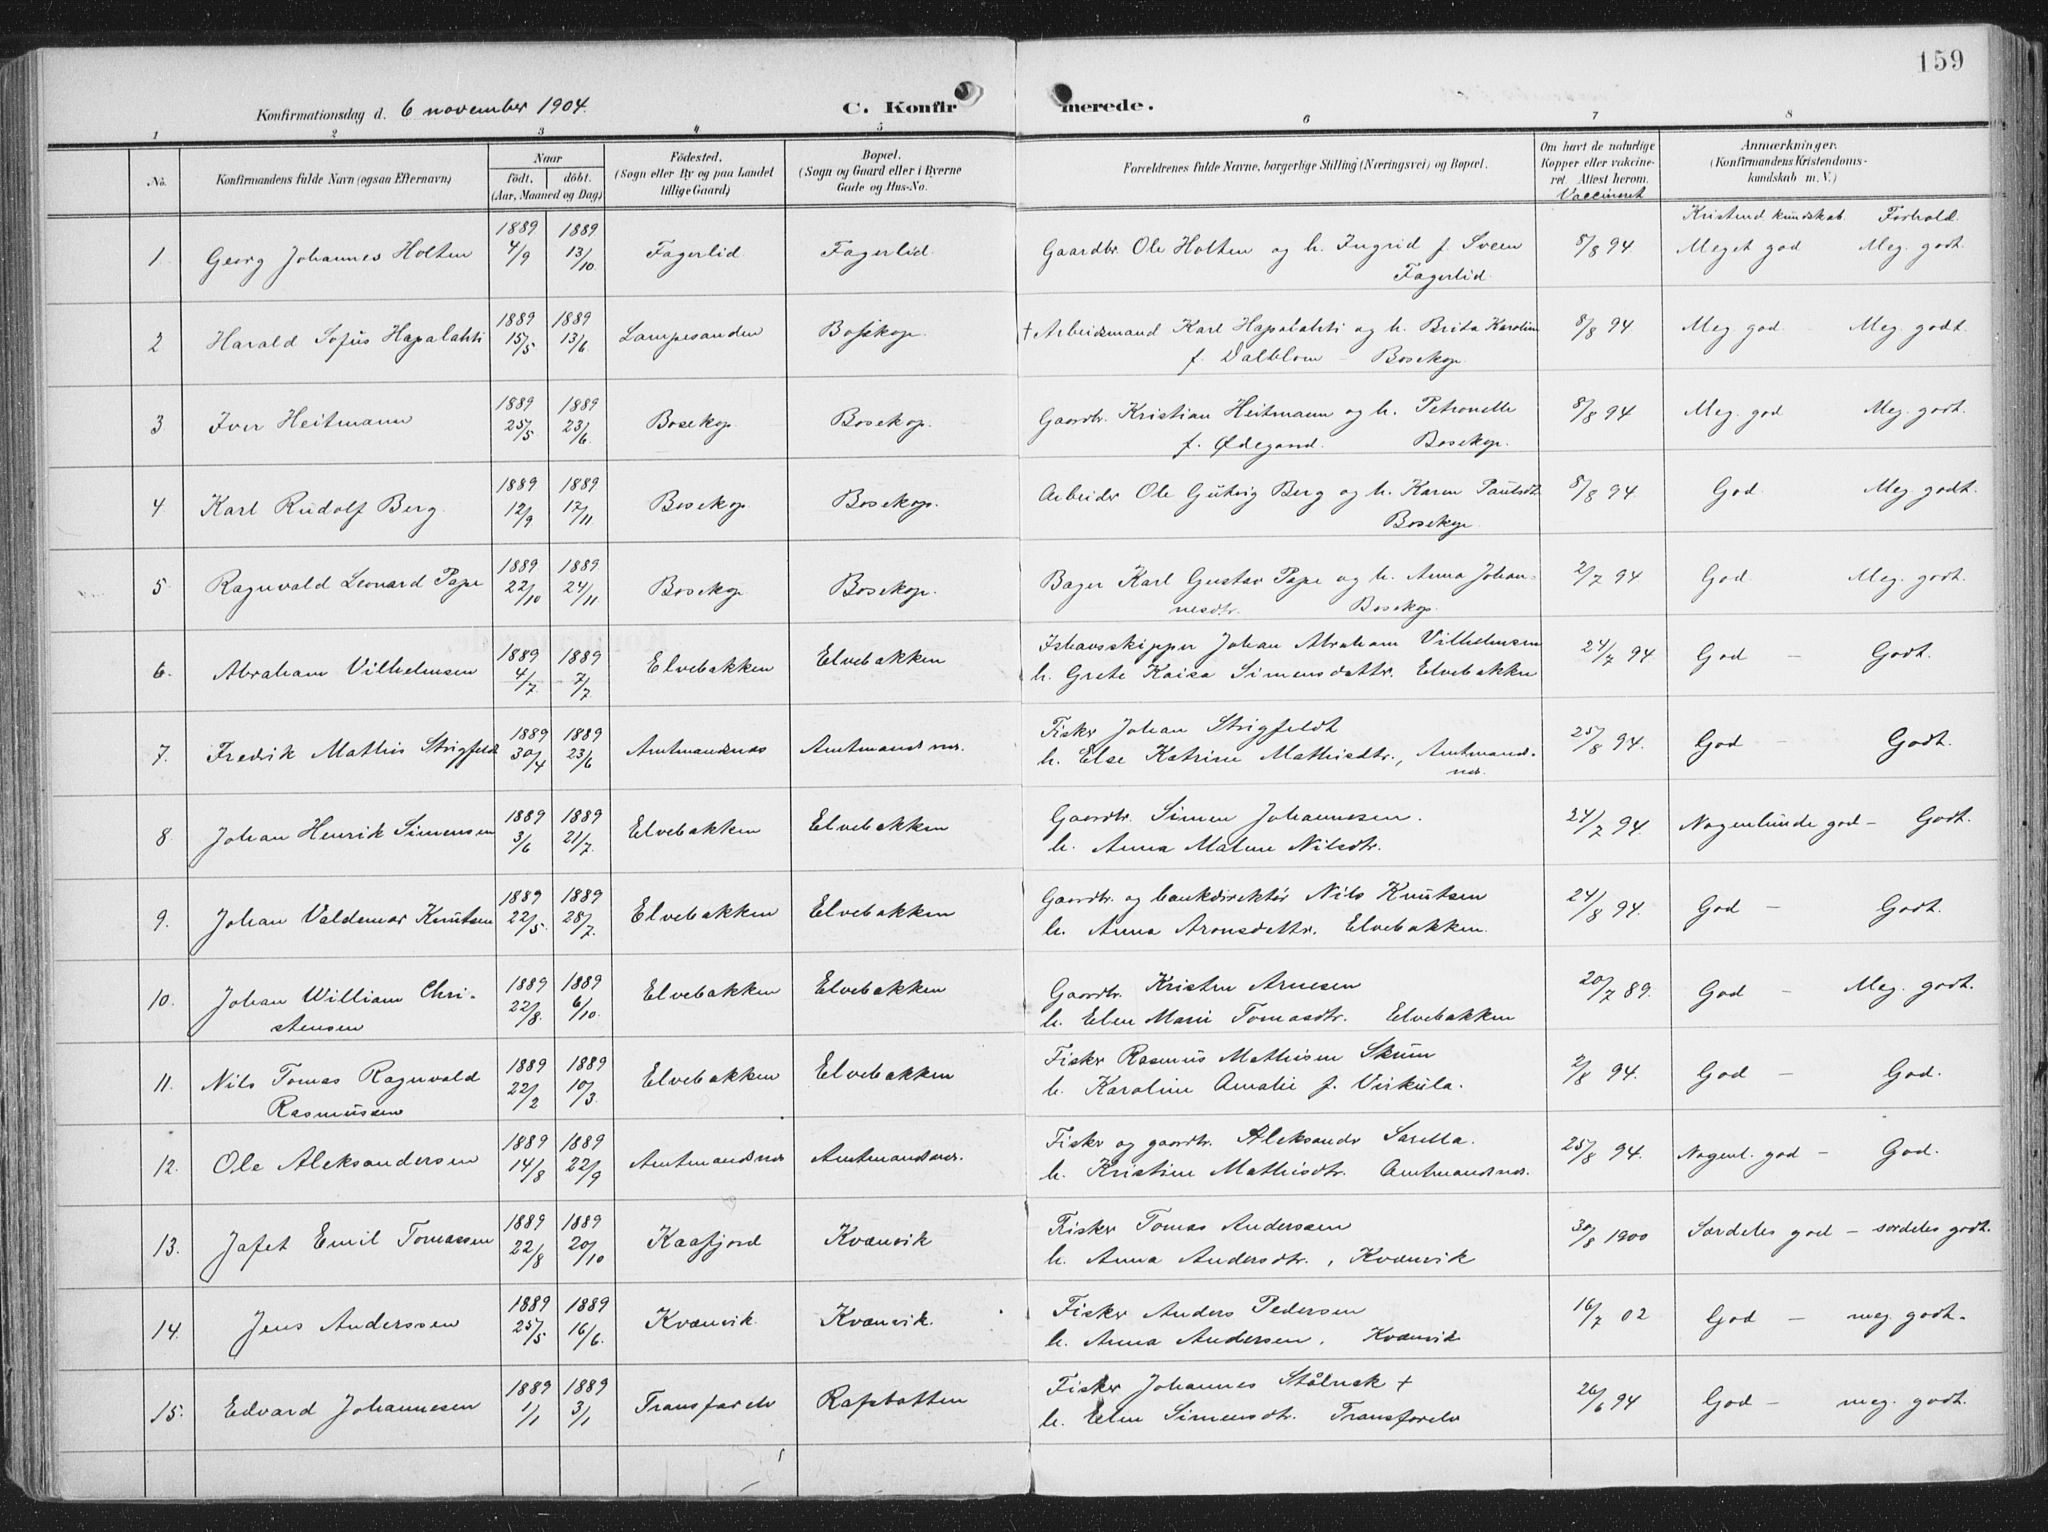 159
Konfirmationsdag d. 6 november 1904.
C. Konfirmerede.
1 2 3 4 5 6 7 8
No.
Konfirmandens fulde Navn (ogsaa Efternavn)
Naar
født. døbt.
(Aar, Maaned og Dag)
Fødested.
(Sogn eller By og paa Landet
tillige Gaard)
Bopæl.
(Sogn og Gaard eller i Byerne
Gade og Hus-No.
Forældrenes fulde Navne, borgerlige Stilling (Næringsvei) og Bopæl.
Om havt de naturlige
Kopper eller vakcine-
ret. Attest herom.
Vaccineret
Anmærkninger.
(Konfirmandens Kristendoms-
kundskab m. V.)
Kristend kundskab Forhold.
1 Georg Johannes Holten 1889 4/9 1889 13/10 Fagerlid Fagerlid. Gaardbr. Ole Holten og h. Ingrid f. Sveen 8/8 94. Meget god Meg. godt.
Fagerlid.
2 Harald Sofus Hapalahti 1889 15/5 1889 13/6 Lampesanden Bossekop. + Arbeidsmand Karl Hapalahti og h. Brita Karolin 8/8 94 Meg. god - Meg. godt.
f. Dalblom - Bosekop.
3 Iver Heitmann 1889 25/5 1889 23/6. Bosekop Bosekop. Gaardbr. Kristian Heitmann og h. Petronelle 8/8 94 Meg. god Meg. godt.
f. Ødegaard. Bosekop.
4. Karl Rudolf Berg. 1889 12/9 1889 17/11 Bosekop Bosekop. Arbeider Ole Gutvig Berg og h. Karen Paulsdt. 8/8 94. God. Meg. godt.
Bosekop
5. Ragnvald Leonard Pape 1889 22/10 1889 24/11 Bosekop Bosekop. Bager Karl Gustav Pape og h. Anna Johan-
nesdtr. Bosekop. 2/7 94 God Meg. godt.
6. Abraham Vilhelmsen 1889 4/7 1889 7/7. Elvebakken Elvebakken Ishavsskipper Johan Abraham Vilhelmsen 24/7 94 God - Godt.
h. Grete Kaisa Simensdattr. Elvebakken
7. Fredrik Mathis Strigfeldt 1889 30/4 1889 23/6 Amtmandsnæs Amtmandsnæs. Fisker Johan Strigfeldt 25/8 94. God - Godt.
h. Else Katrine Mathisdtr., Amtmands-
næs.
8 Johan Henrik Simensen 1889 3/6 1889 21/7. Elvebakken Elvebakken Gaardbr. Simen Johannesen. 24/7 94. Nogenlunde god - Godt.
h. Anna Malene Nilsdtr.
9. Johan Valdemar Knutsen 1889 22/5. 1889 28/7. Elvebakken Elvebakken Gaardbr. og bankdirektør Nils Knutsen 24/8 94. God - Godt.
h. Anna Aronsdattr. Elvebakken.
10. Johan William Chri- 1889 22/8. 1889 6/10. Elvebakken Elvebakken Gaardbr. Kristen Arnesen 20/7 89. God - Meg. godt.
stensen h. Elen Marie Tomasdtr. Elvebakken
11. Nils Tomas Ragnvald 1889 22/2 1889 10/3. Elvebakken Elvebakken Fisker Rasmus Mathisen Skum 2/8 94. God - God.
Rasmussen h. Karoline Amalie f. Virkula.
12. Ole Aleksandersen 1889 14/8 1889 22/9 Amtmandsnæs Amtmandsnæs. Fisker og gaardbr. Aleksander Sarilla. 25/8 94. Nogenl. god - God.
h. Kristine Mathisdtr. Amtmandsnæs.
13. Jafet Emil Tomassen 1889 22/8 1889 20/10 Kaafjord Kvænvik Fisker Tomas Anderssen 30/8 1900 Særdeles god - særdeles godt.
h. Anna Andersdtr., Kvænvik
14. Jens Anderssen 1889 25/5 1889 16/6. Kvænvik. Kvænvik. Fisker Anders Pedersen 16/7 02 God - meg. godt.
h. Anna Andersen, Kvænvik
15. Edvard Johannesen 1889 1/1 1889 3/1 Transfarelv Rafsbotten Fisker Johannes Stålnak + 26/6 94 God - meg. godt.
h. Elen Simensdtr. Transfarelv